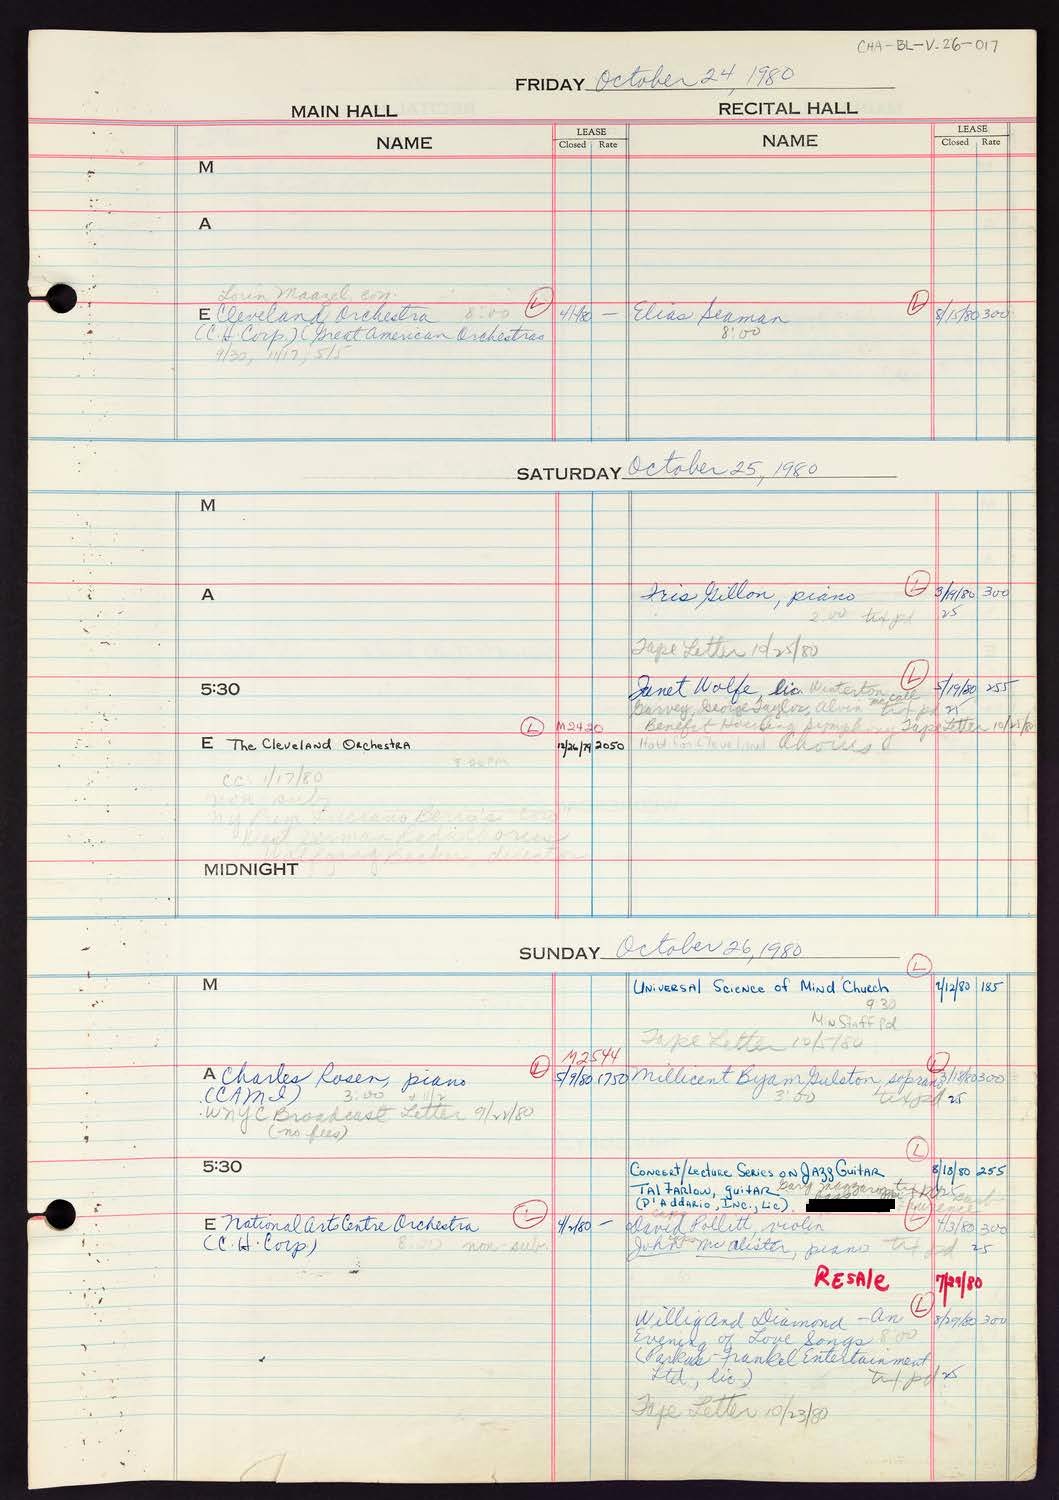 CHA-BL-V-26-017
FRIDAY October 24, 1980
MAIN HALL RECITAL HALL
NAME LEASE Closed Rate NAME LEASE Closed Rate
M
A
Lorin Maazel, con.
E Cleveland Orchestra 8:00 L 4/1/80 — Elias Seaman L 8/15/80 300
(C.H. Corp.) (Great American Orchestras 8:00
9/30, 11/17, 5/5
SATURDAY October 25, 1980
M
A Iris Gillon, piano L 3/19/80 300
2:00 txt pd 25
Tape Letter 10/25/80
5:30 Janet Wolfe, lic. Winterton L 5/19/80 255
Garvey, George Taylor, Alvin McCall txt pd 25
L M2420 Benefit Housing Symphony Tape Letter 10/25/80
E The Cleveland Orchestra 12/26/79 2050 Hold for Cleveland Chorus
8:00PM
CC 1/17/80
non sub
NY Prem Luciano Berio's
German Radio Chorus
director
MIDNIGHT
SUNDAY October 26, 1980
L
M Universal Science of Mind Church 2/12/80 185
9:30
Mn Staff Pd
Tape Letter 10/5/80
M2544
A Charles Rosen, piano L 5/9/80 1750 Millicent Byam Gulston, soprano L 3/18/80 300
(CAMI) 3:00 + 11/2 3:00 txt pd 25
WNYC Broadcast Letter 9/28/80
(no fees)
L
5:30 Concert/Lecture Series on Jazz Guitar 8/18/80 255
Tal Farlow, guitar Gary
(D'Addario, Inc., Lic).
E National Arts Centre Orchestra L 4/2/80 — David Pollitt, violin L 4/3/80 300
(C.H. Corp) 8:00 non-sub. John McAlister, piano txt pd 25
Resale 7/29/80
Willig and Diamond - An L 8/29/80 300
Evening of Love Songs 8:00
(Parkus-Frankel Entertainment
Ltd., lic.) txt pd 25
Tape Letter 10/23/80